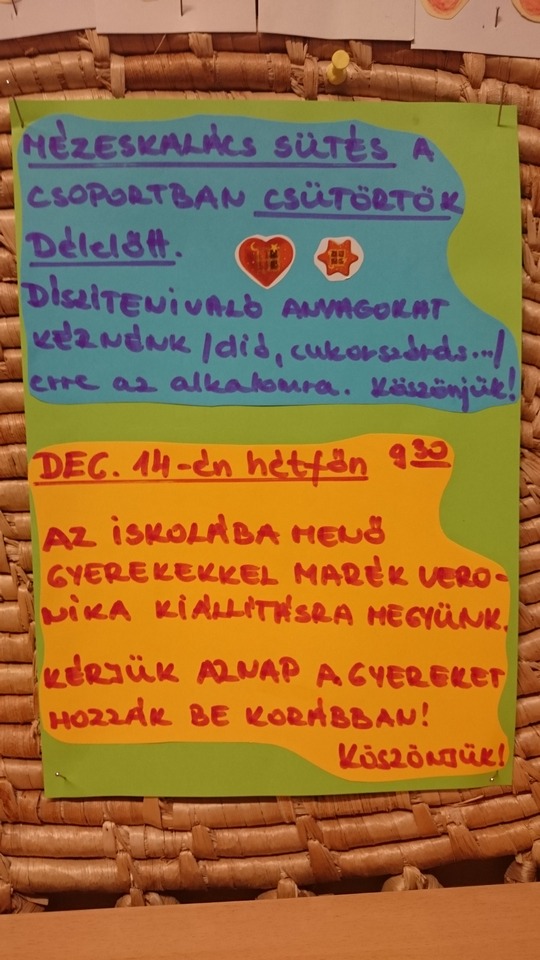 MÉZESKALÁCS SÜTÉS A
CSOPORTBAN CSÜTÖRTÖK
Délelőtt.
DÍSZÍTENIVALÓ ANYAGOKAT
KÉRNÉNK /dió, cukorszórás.../
erre az alkalomra. Köszönjük!
DEC. 14-én hétfőn 9 30
AZ ISKOLÁBA MENŐ
GYEREKEKKEL MARÉK VERO-
NIKA KIÁLLÍTÁSRA MEGYÜNK.
KÉRJÜK AZNAP A GYEREKET
HOZZÁK BE KORÁBBAN!
Köszönjük!